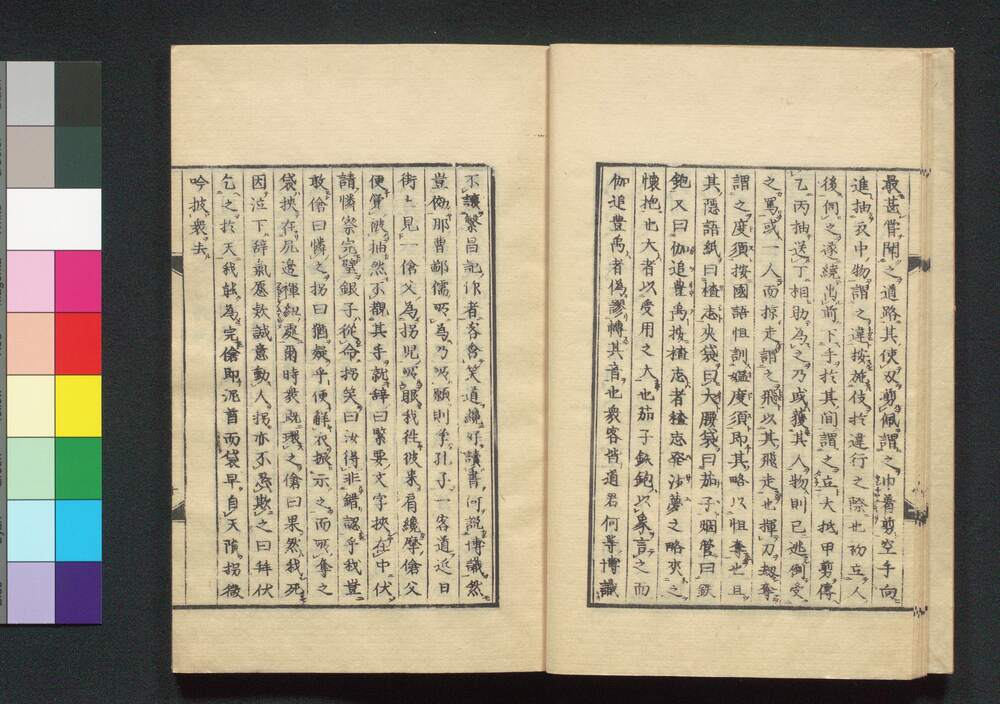 最甚嘗聞之道路其使双剪佩謂之巾着剪空手向
進抽衣中物謂之違按施伎於違行之際也故立人
後伺之遂繞出前下手於其間謂之立大抵甲剪傳
乙丙抽送丁相助為之乃或獲其人物則已逃倒受
之罵或一人而掠走謂之飛以其飛走也揮刀却奪
謂之度須按國語怚訓嫗度須即其略以怚奪也且
其隱語紙曰楂志夾袋曰大腰袋曰茄子烟管曰鉄
鉋又曰伽追豊禹按楂志者楂志發沽夢之略夾之
懷抱也大者以受用之大也茄子鉄鉋以象言之而
伽追豊禹者偽謬轉其音也衆客皆道君何等博識
不讓繁昌記作者客含笑道纔好讀書何説博識然
豈做那曹鄙儒所為乃所願則學孔子一客道近日
街上見一傖父為拐児所眼我徃彼来肩纔摩傖父
便覺被抽然不觀其手就辞曰緊要文字挾在中伏
請憐察完璧銀子從命拐笑曰汝得非錯認乎我豈
敢傖曰憐之拐曰猶疑乎便解衣振示之而所奪之
袋挾在尻邊揮紐處爾時衆既環之傖曰果然我死
因泣下辞氣愿欵誠意動人拐亦不忍欺之曰拜伏
乞之於天我能為完傖即泥首而袋早自天隕拐微
吟披衆去